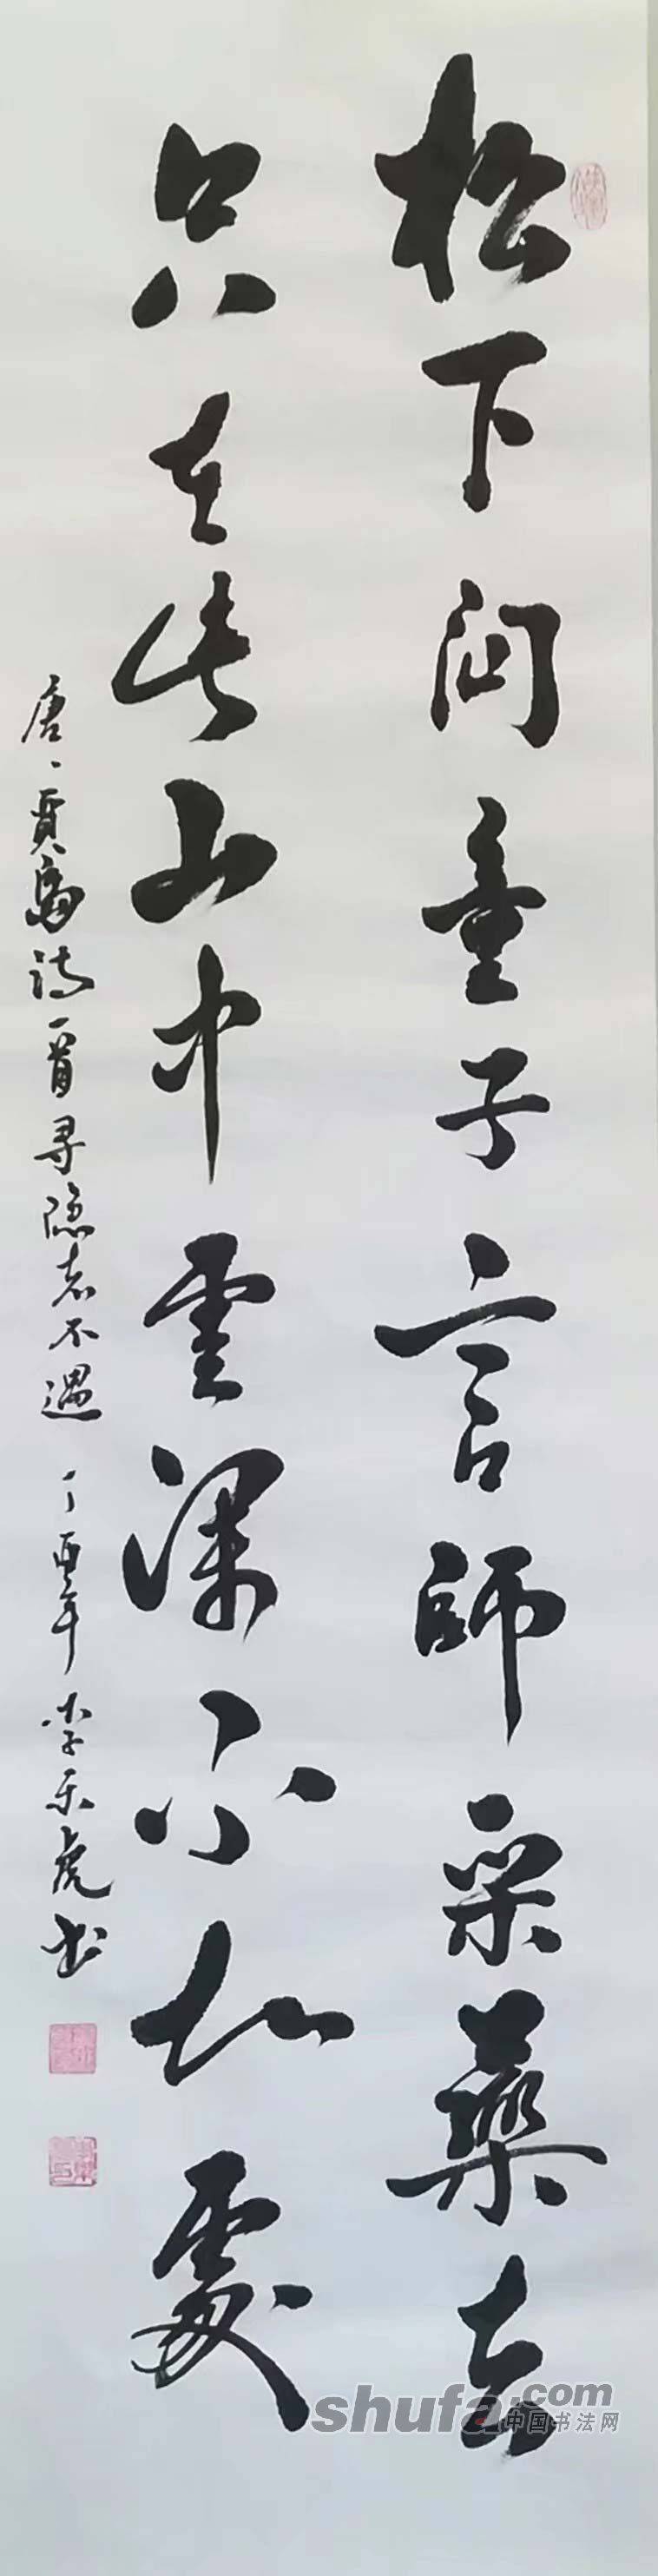 松下问童子言師采藥去
只在此山中雲深不知處
唐、賈島诗一首寻隐者不遇 丁酉年 李乐虎书
shufa.com
中国书法网